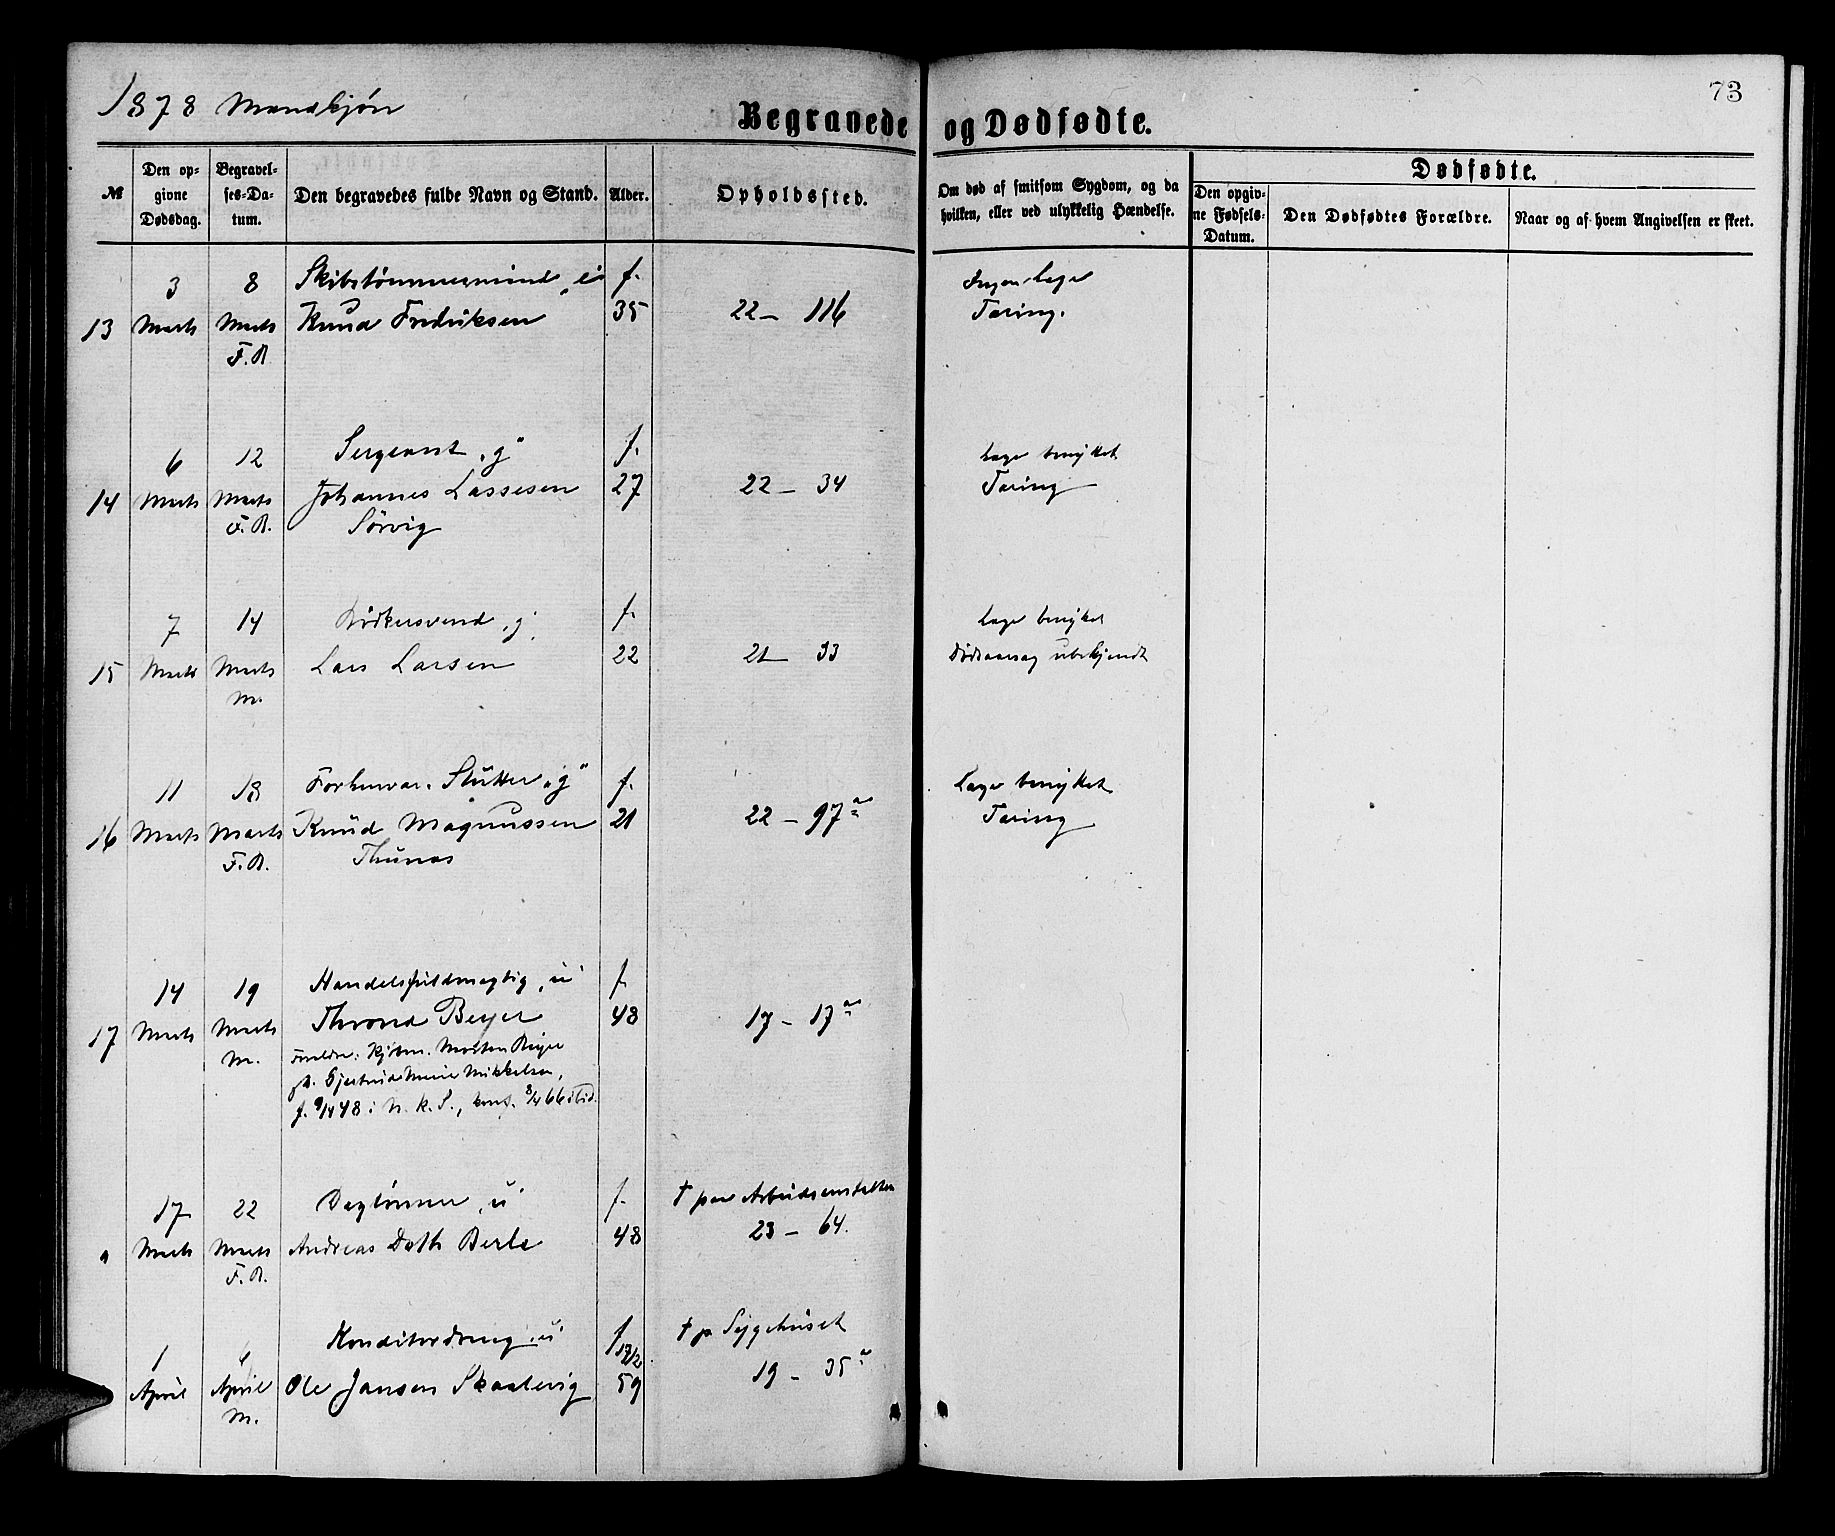 1878 Mandkjøn
Begravede og Dødfødte.
73
№
Den opgivne Dødsdag.
Begravelses-Datum.
Den begravedes fulde Navn og Stand.
Alder.
Opholdssted.
Om død af smitsom Sygdom, og da hvilken, eller ved ulykkelig Hændelse.
Dødfødte.
Den opgivne Fødsels-Datum.
Den Dødfødtes Forældre.
Naar og af hvem Angivelsen er skeet.
3 8 Skibstømmermand f. Ingen Læge
13 Marts Marts Knud Fredriksen 35 22 - 116 Tæring.
F.R.
6 12 Sergeant "g" f. Læge benyttet
14 Marts Marts Johannes Lassesen 27 22 - 34 Tæring
F.R. Sørvig
7 14 Bødkersvend "g" f. Læge benyttet
15 Marts Marts Lars Larsen 22 21 - 33 Dødsaarsag ubekjendt
M.
11 18 Forhenvær. "g" f. Læge benyttet
16 Marts Marts Knud Magnussen 21 22 - 97 a Tæring
F.R. Thunæs
14 19 Handelsfuldmægtig "u" f.
17 Marts Marts Thrond Beyer 48 17 - 17 a
M. Forældre: Kjøbm. Morten Beyer
Gjertrud Marie Mikkelsen,
f. i N. K. S., konf. 66 ibid.
17 22 Daglønner "u" f. † paa Arbeidsanstalten
Marts Marts Andreas Doth Berle 48 23 - 64.
F.R.
1 6 Konditordreng "u" f. † p. Sygehuset
April April Ole Jansen Skaalevig 59 19 - 35 a
M.